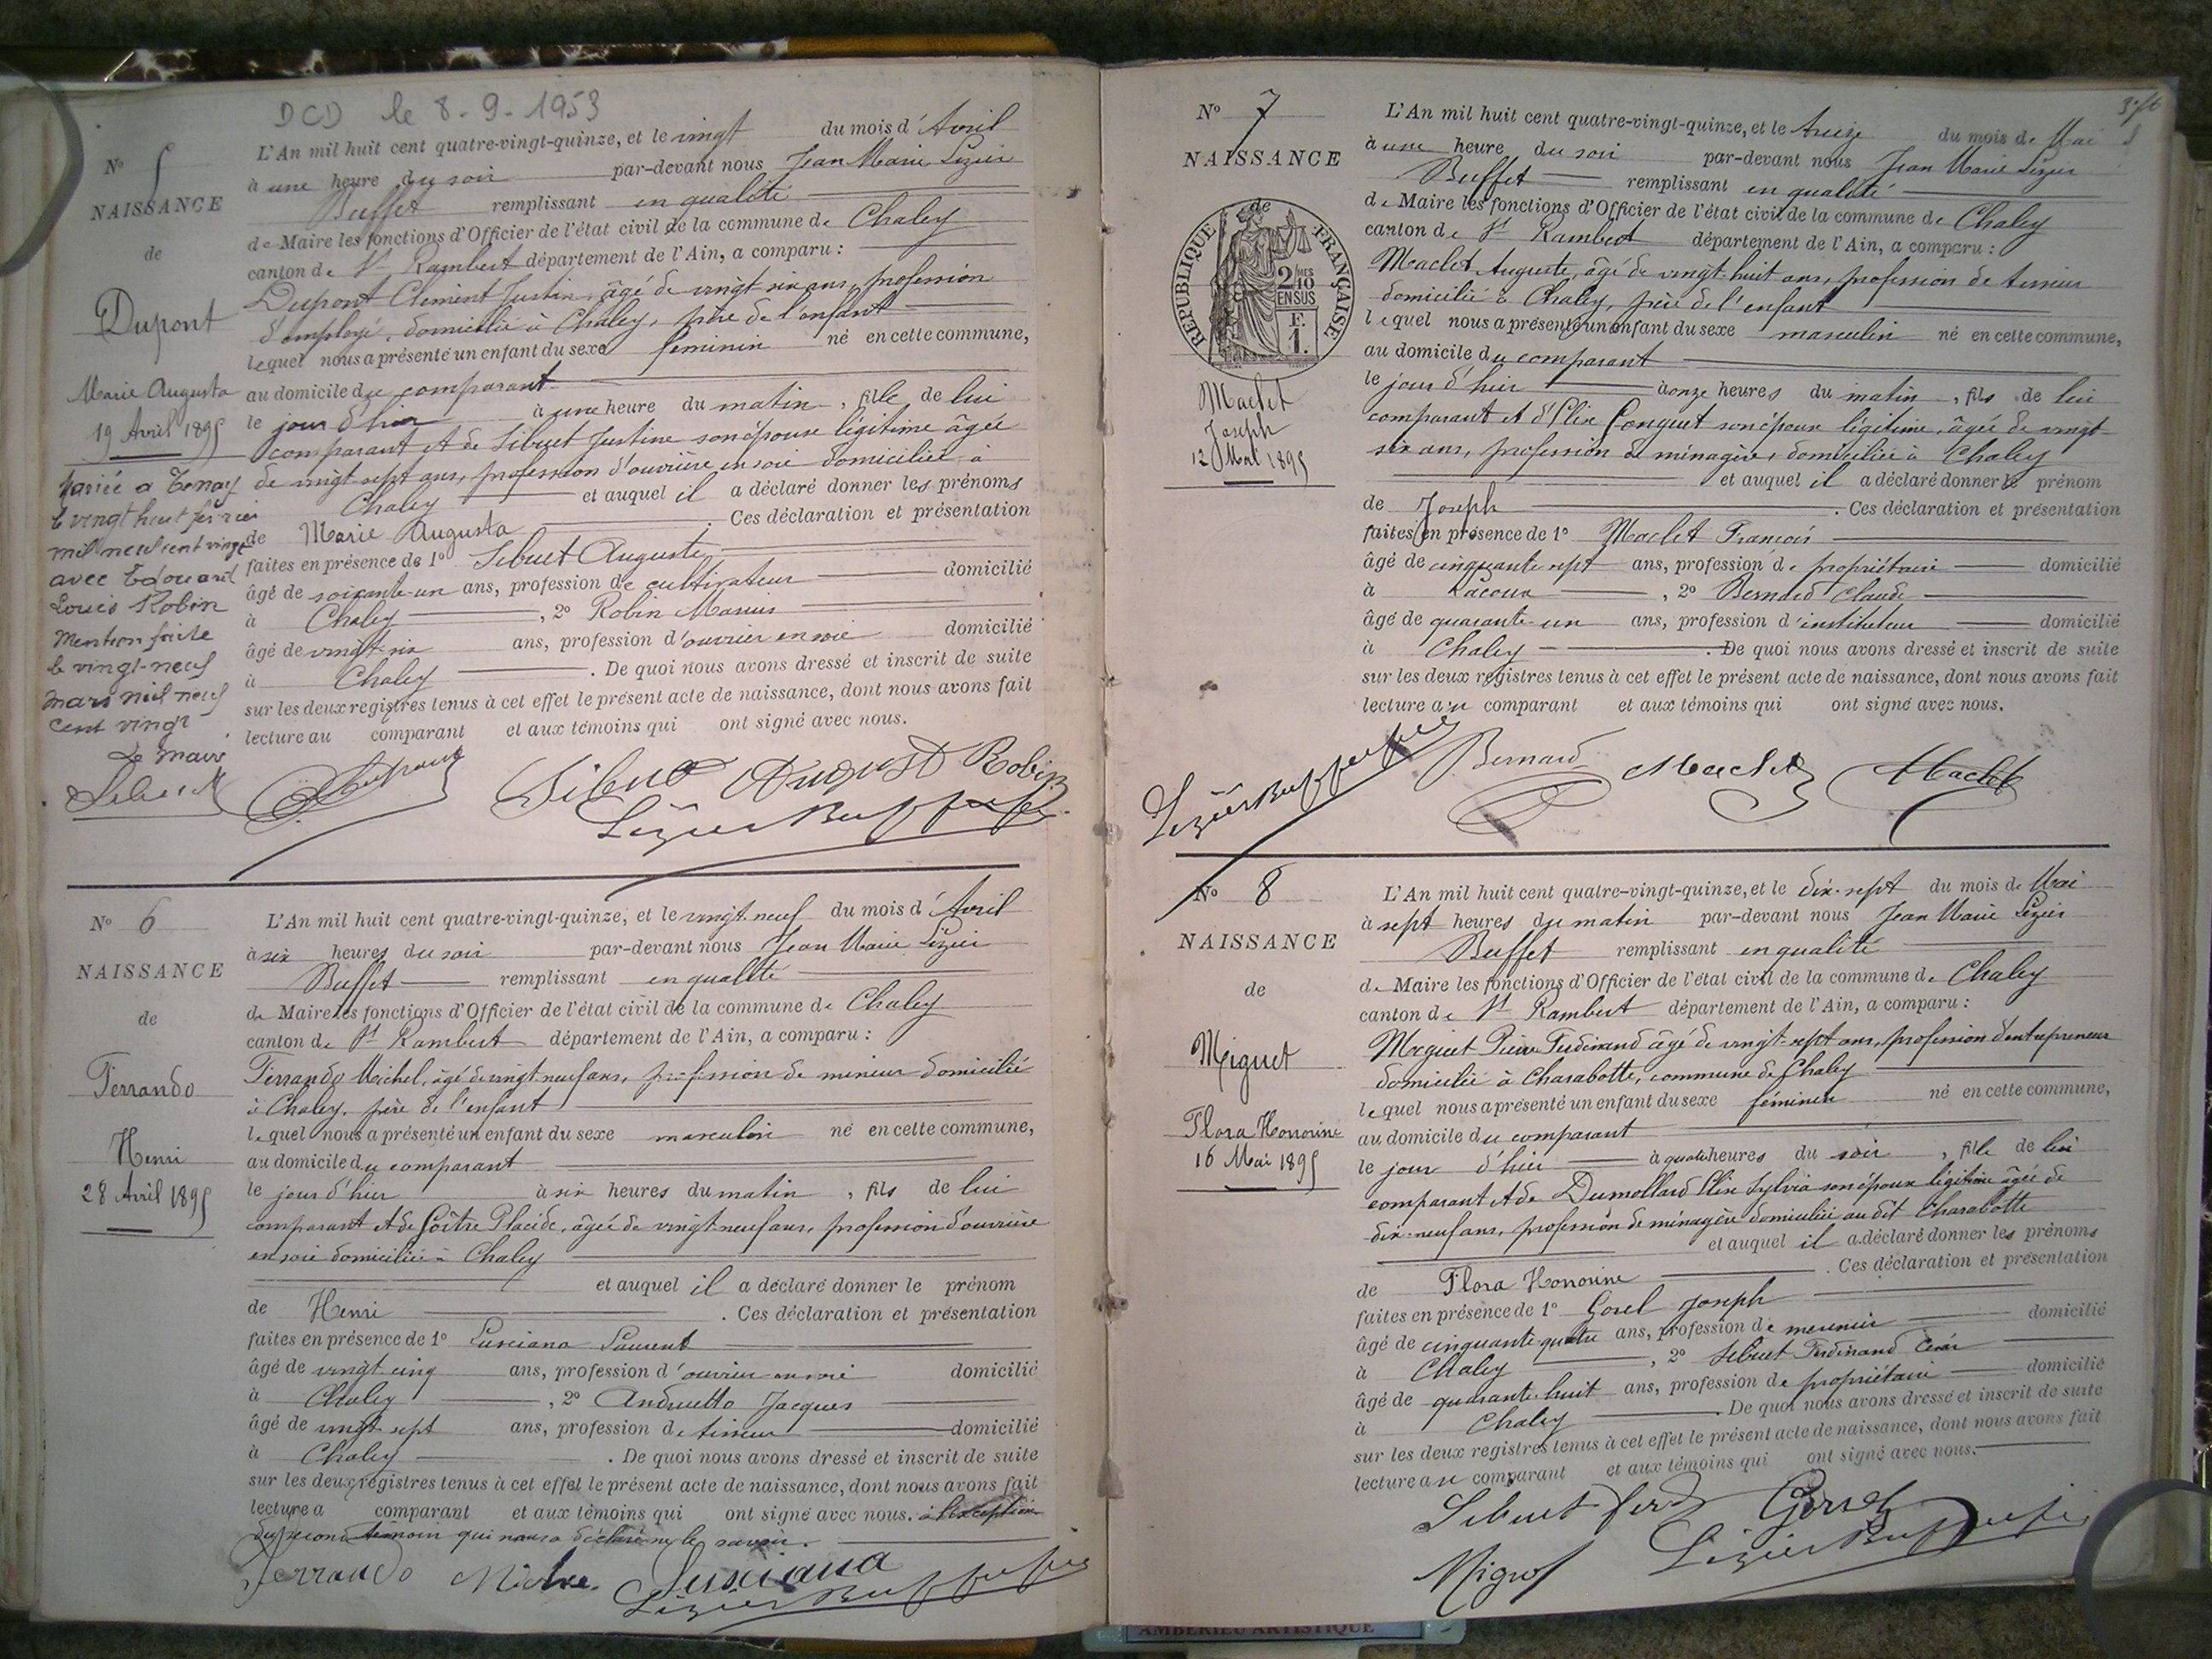 DCD le 8-9-1953
N° 5
NAISSANCE
de
Dupont
Marie Augusta
19 Avril 1895
mariée a Tenay
le vingt huit février
mil neuf cent vingt
avec Edouard
Louis Robin
Mention faite
le vingt-neuf
mars mil neuf
cent vingt
Le maire
L'An mil huit cent quatre-vingt-quinze, et le vingt du mois d'Avril
à une heure du soir par-devant nous Jean Marie Lézier
Buffet remplissant en qualité
de Maire les fonctions d'Officier de l'état civil de la commune de Chaley
canton de St Rambert département de l'Ain, a comparu :
Dupont Clément Justin, âgé de vingt six ans, profession
d'employé, domicilié à Chaley, père de l'enfant
lequel nous a présenté un enfant du sexe féminin né en cette commune,
au domicile du comparant
le jour d'hier à une heure du matin, fille de lui
comparant et de Sibuet Justine son épouse légitime âgée
de vingt sept ans, profession d'ouvrière en soie domiciliée à
Chaley et auquel il a déclaré donner les prénoms
de Marie Augusta . Ces déclaration et présentation
faites en présence de 1° Sibuet Auguste
âgé de soixante un ans, profession de cultivateur domicilié
à Chaley , 2° Robin Marius
âgé de vingt six ans, profession d'ouvrier en soie domicilié
à Chaley . De quoi nous avons dressé et inscrit de suite
sur les deux registres tenus à cet effet le présent acte de naissance, dont nous avons fait
lecture au comparant et aux témoins qui ont signé avec nous.
Dupont Sibuet August Robin
Lézier Buffet
N° 6
NAISSANCE
de
Ferrando
Henri
28 Avril 1895
L'An mil huit cent quatre-vingt-quinze, et le vingt neuf du mois d'Avril
à six heures du soir par-devant nous Jean Marie Lézier
Buffet remplissant en qualité
de Maire les fonctions d'Officier de l'état civil de la commune de Chaley
canton de St Rambert département de l'Ain, a comparu :
Ferrando Michel, âgé de vingt neuf ans, profession de mineur domicilié
à Chaley, père de l'enfant
lequel nous a présenté un enfant du sexe masculin né en cette commune,
au domicile du comparant
le jour d'hier à six heures du matin, fils de lui
comparant et de Goître Placide, âgée de vingt neuf ans, profession d'ouvrière
en soie domiciliée à Chaley
et auquel il a déclaré donner le prénom
de Henri . Ces déclaration et présentation
faites en présence de 1° Lusciana Laurent
âgé de vingt cinq ans, profession d'ouvrier en soie domicilié
à Chaley , 2° Andruetto Jacques
âgé de vingt sept ans, profession de mineur domicilié
à Chaley . De quoi nous avons dressé et inscrit de suite
sur les deux registres tenus à cet effet le présent acte de naissance, dont nous avons fait
lecture a comparant et aux témoins qui ont signé avec nous. à l'exception
du second témoin qui nous a déclaré ne le savoir.
Ferrando Lusciana
Lézier Buffet
N° 7
NAISSANCE
de
REPUBLIQUE FRANÇAISE
2/10 MES
EN SUS
F.
1.
Maclet
Joseph
12 Mai 1895
L'An mil huit cent quatre-vingt-quinze, et le treize du mois de Mai
à une heure du soir par-devant nous Jean Marie Lézier
Buffet remplissant en qualité
de Maire les fonctions d'Officier de l'état civil de la commune de Chaley
canton de St Rambert département de l'Ain, a comparu :
Maclet Auguste, âgé de vingt-huit ans, profession de
domicilié à Chaley, père de l'enfant
lequel nous a présenté un enfant du sexe masculin né en cette commune,
au domicile du comparant
le jour d'hier à onze heures du matin, fils de lui
comparant et d'Elise Conquet son épouse légitime, âgée de vingt
six ans, profession de ménagère, domiciliée à Chaley
et auquel il a déclaré donner le prénom
de Joseph . Ces déclaration et présentation
faites en présence de 1° Maclet François
âgé de cinquante sept ans, profession de propriétaire domicilié
à Lacoux , 2° Bernard Claude
âgé de quarante-un ans, profession d'instituteur domicilié
à Chaley . De quoi nous avons dressé et inscrit de suite
sur les deux registres tenus à cet effet le présent acte de naissance, dont nous avons fait
lecture au comparant et aux témoins qui ont signé avec nous.
Lézier Buffet Bernard Maclet Maclet
N° 8
NAISSANCE
de
Miguet
Flora Honorine
16 Mai 1895
L'An mil huit cent quatre-vingt-quinze, et le dix-sept du mois de Mai
à sept heures du matin par-devant nous Jean Marie Lézier
Buffet remplissant en qualité
de Maire les fonctions d'Officier de l'état civil de la commune de Chaley
canton de St Rambert département de l'Ain, a comparu :
Miguet Pierre Ferdinand âgé de vingt-sept ans, profession d'entrepreneur
domicilié à Charabotte, commune de Chaley
lequel nous a présenté un enfant du sexe féminin né en cette commune,
au domicile du comparant
le jour d'hier à quatre heures du soir, fille de lui
comparant et de Dumollard Elise Sylvia son épouse légitime âgée de
dix-neuf ans, profession de ménagère domiciliée au dit Charabotte
et auquel il a déclaré donner les prénoms
de Flora Honorine . Ces déclaration et présentation
faites en présence de 1° Gorel Joseph
âgé de cinquante quatre ans, profession de meunier domicilié
à Chaley , 2° Sibuet Ferdinand César
âgé de quarante-huit ans, profession de propriétaire domicilié
à Chaley . De quoi nous avons dressé et inscrit de suite
sur les deux registres tenus à cet effet le présent acte de naissance, dont nous avons fait
lecture au comparant et aux témoins qui ont signé avec nous.
Sibuet ferd Gorel
Lézier Buffet
Miguet
AMBERIEU ARTISTIQUE